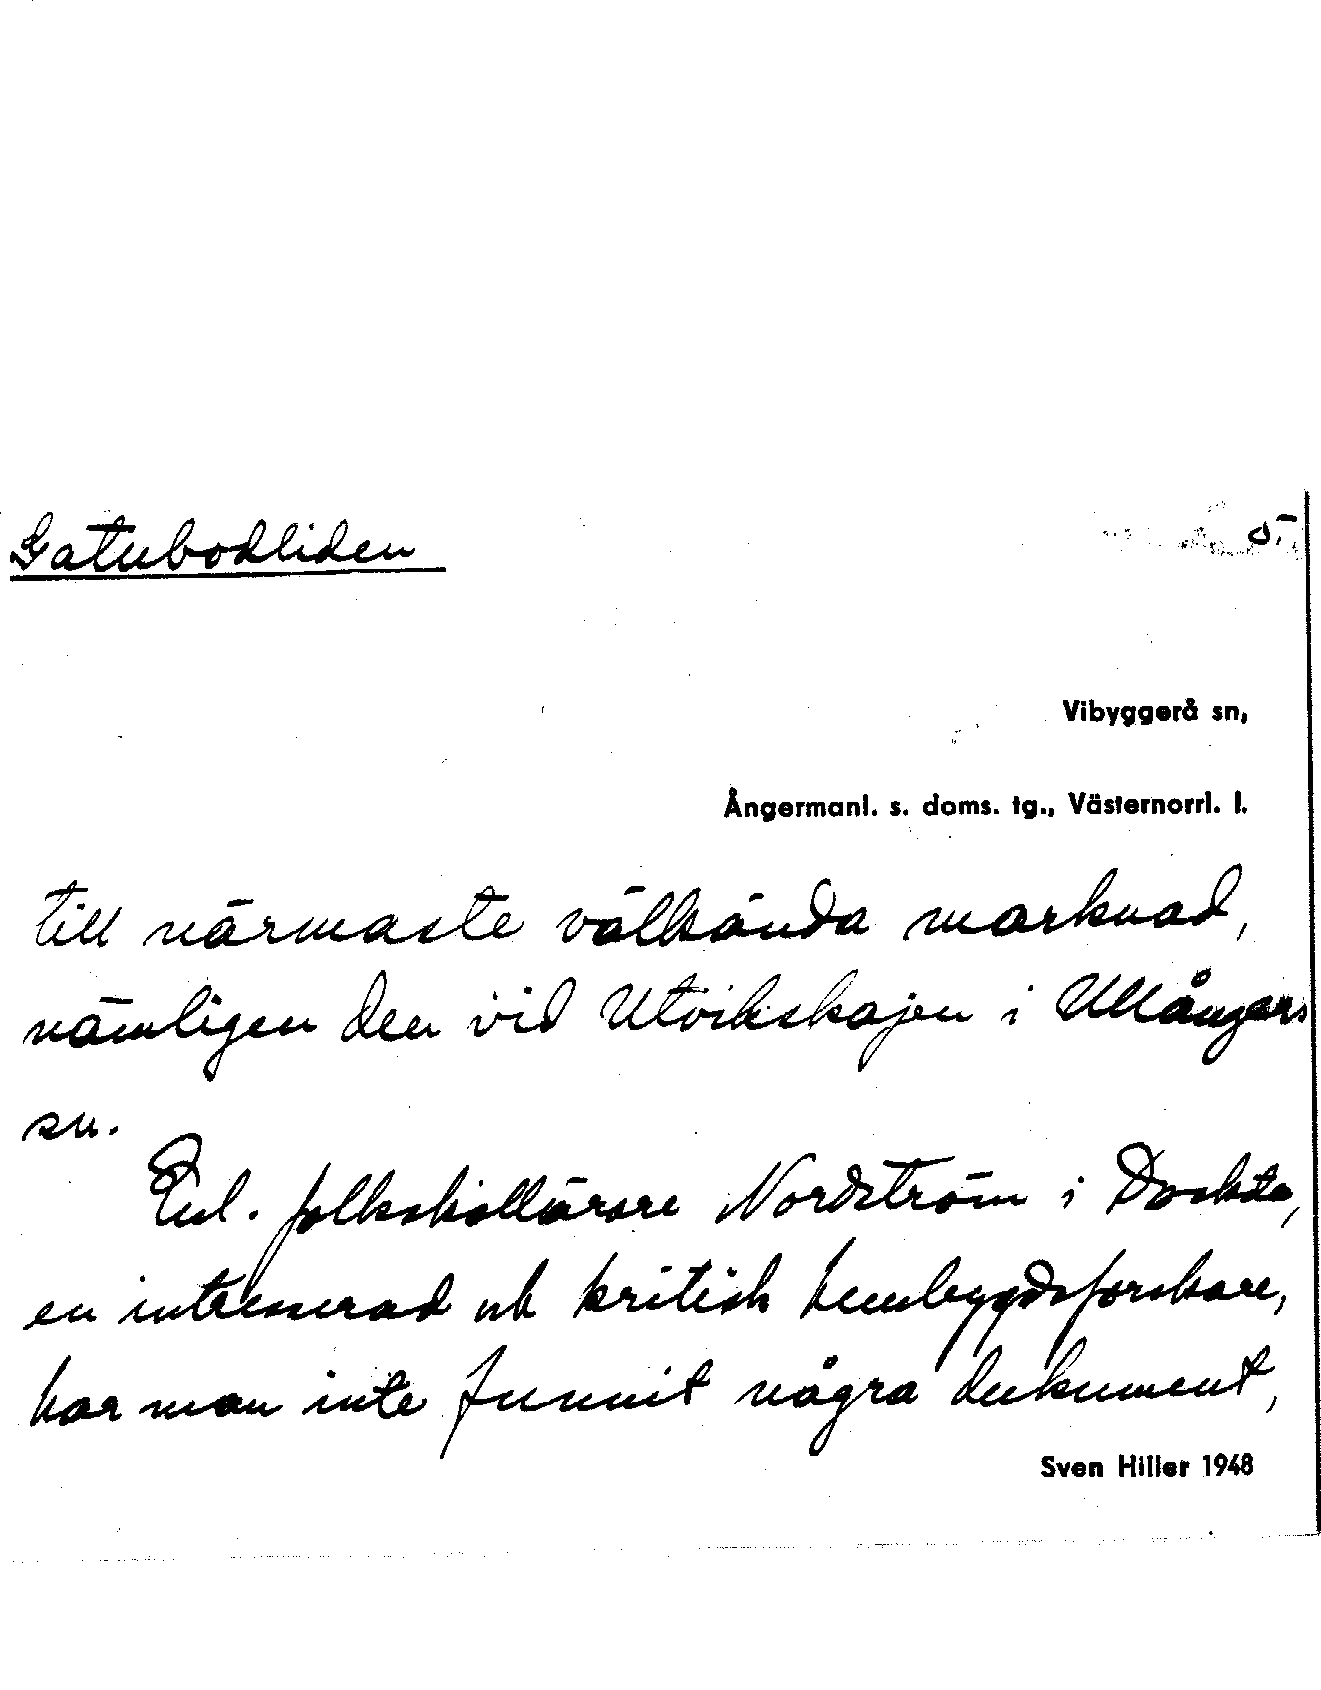 Gatubodliden 5.
Vibyggerå sn,
Ångermanl. s. doms. tg., Västernorrl. l.
till närmaste välkända marknad,
nämligen den vid Utvikskajen i Ullångers
sn.
Enl. folkskollärare Nordström i Docksta,
en intresserad och kritisk hembygdsforskare,
har man inte funnit några dokument,
Sven Hiller 1948